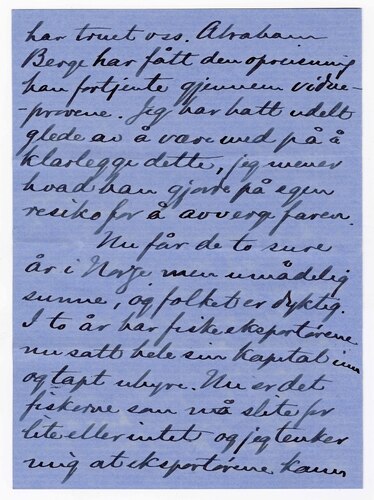 har truet oss. Abraham
Berge har fått den opreisning
han fortjente gjennem vidne-
prøvene. Jeg har hatt udelt
glede av å være med på å
klarlegge dette, jeg mener
hvad han gjorde på egen
resiko for å avverge faren.
Nu får de to sure
år i Norge men umådelig
sunne, og folket er dyktig.
I to år har fiskeeksportørene
nu satt hele sin kapital inn
og tapt uhyre. Nu er det
fiskerne som må slite for
lite eller intet og jeg tenker
mig at eksportørene kann